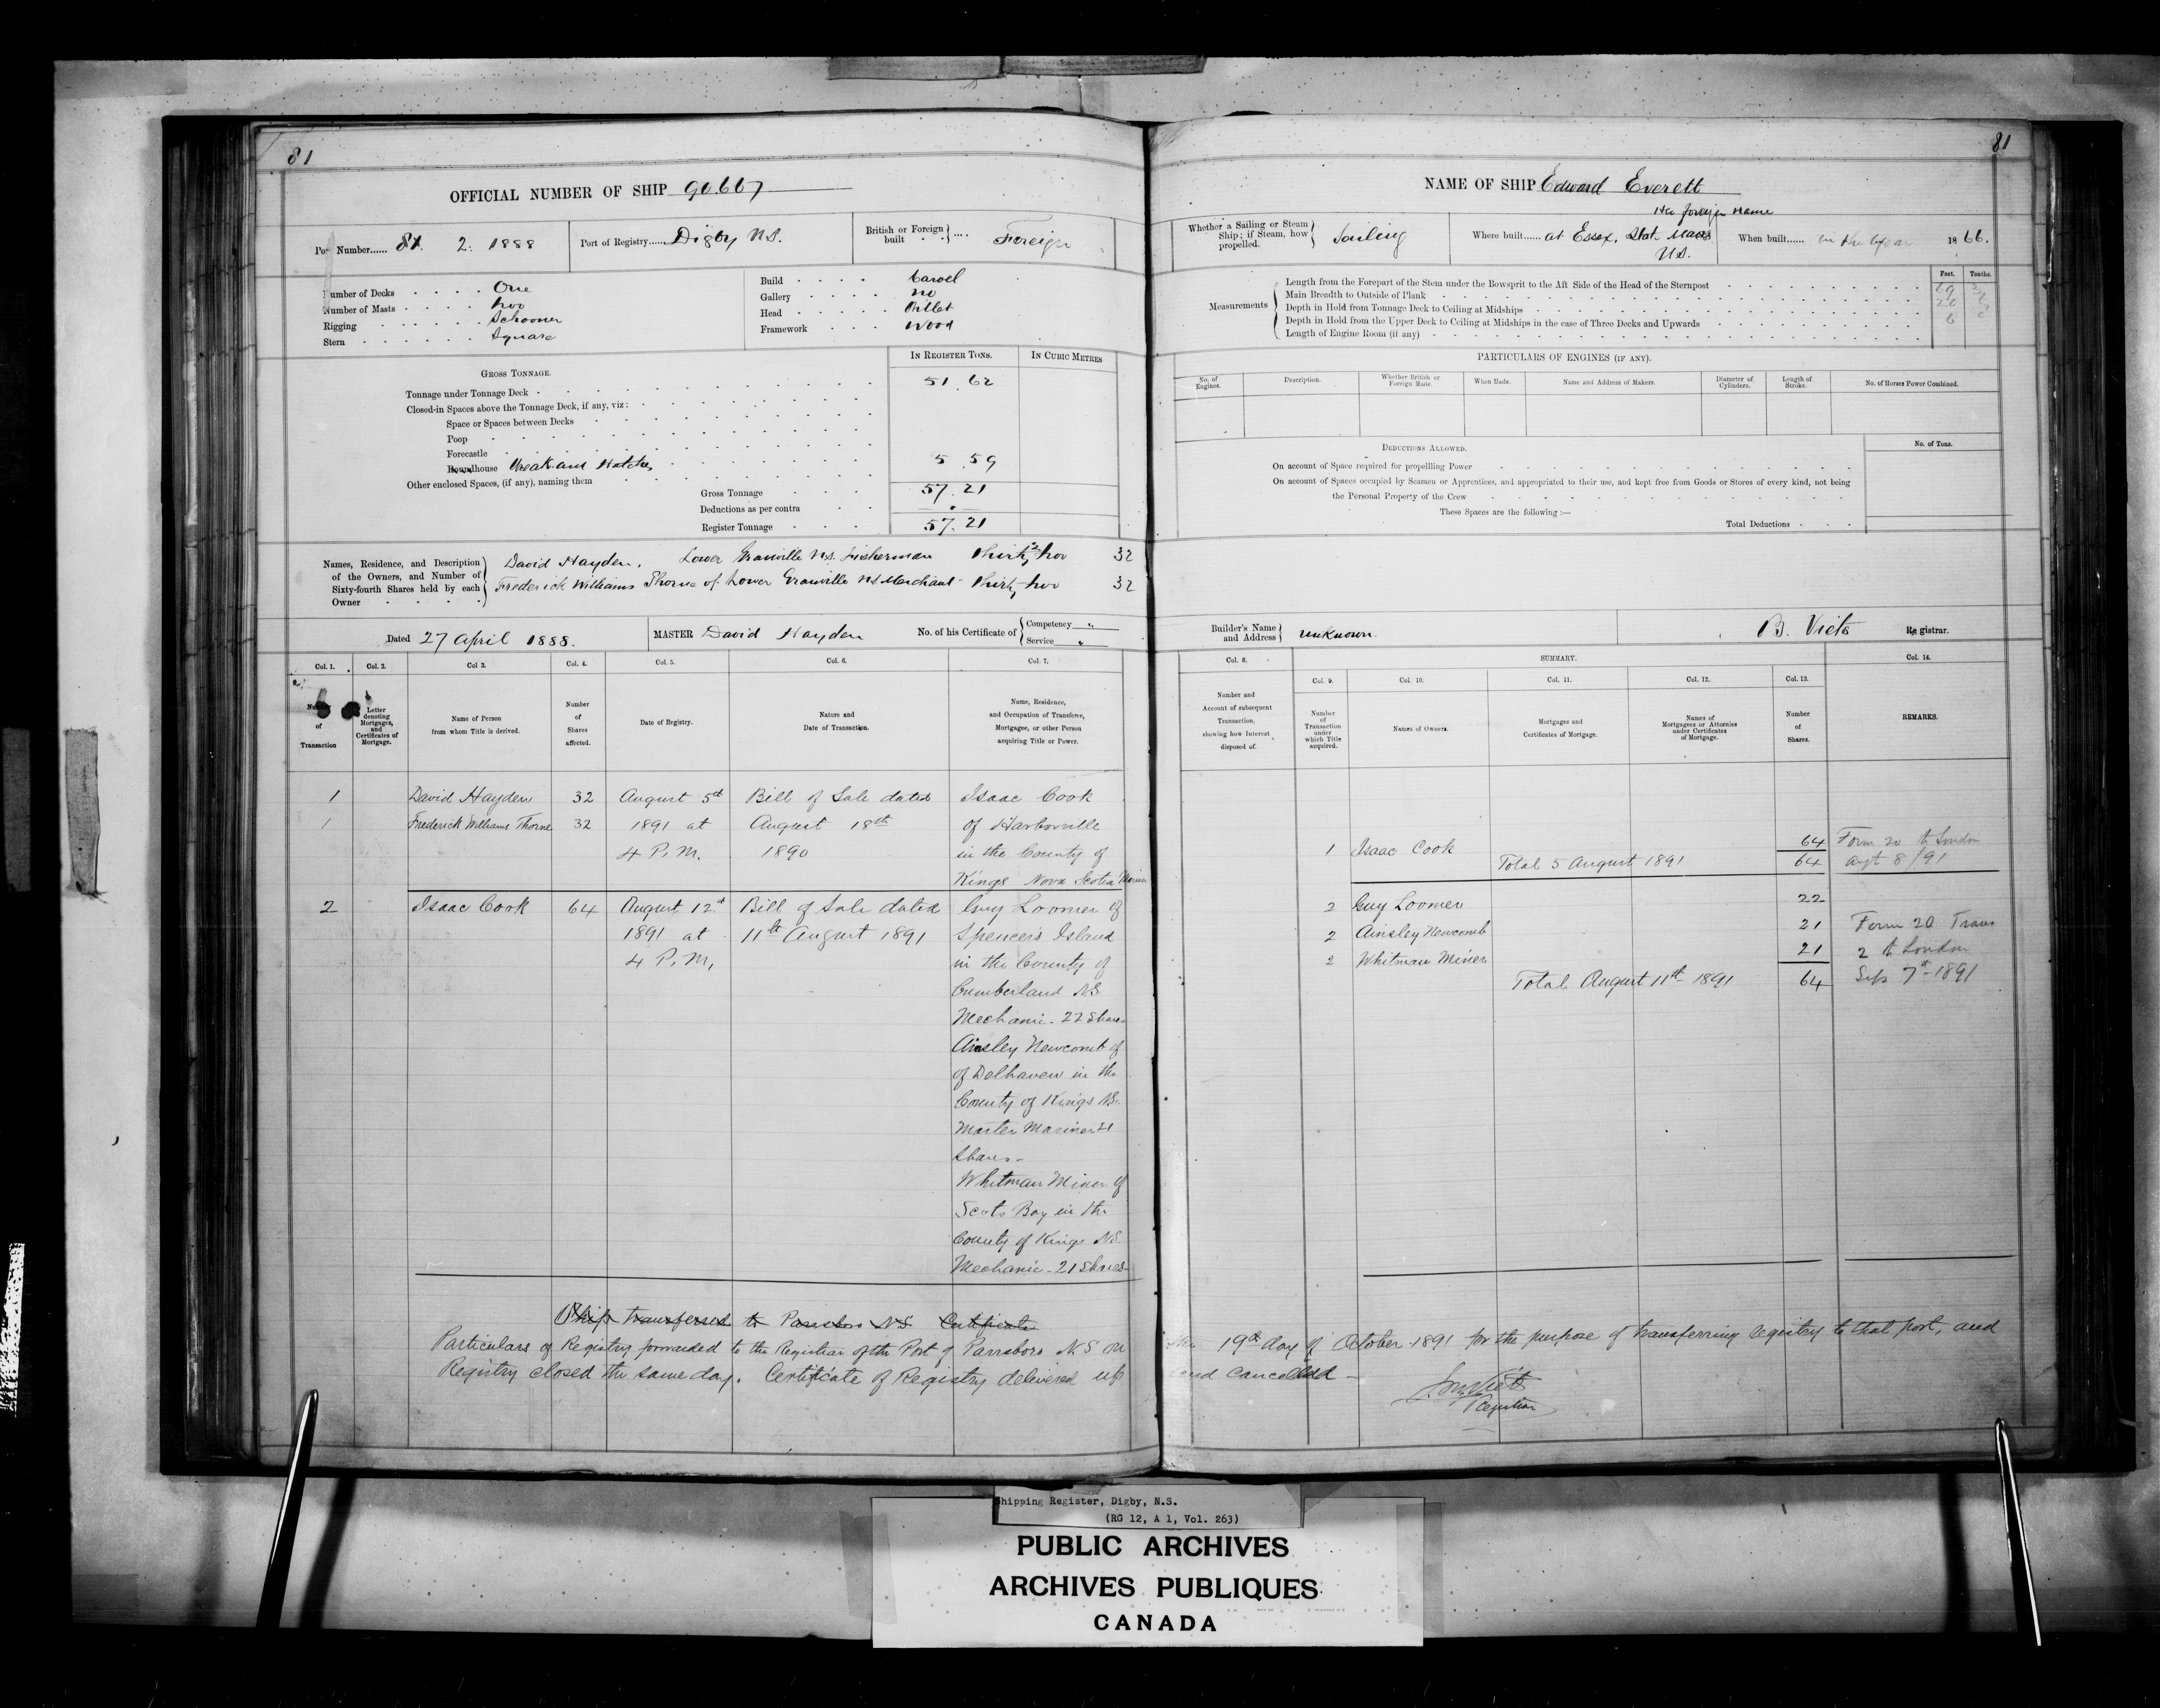 81
OFFICIAL NUMBER OF SHIP 90667
Port Number...... 81. 2. 1888
Port of Registry...... Digby N.S.
British or Foreign built .... Foreign
Number of Decks One
Number of Masts Two
Rigging Schooner
Stern Square
Build Carvel
Gallery no
Head Billet
Framework Wood
IN REGISTER TONS.
IN CUBIC METRES
GROSS TONNAGE.
Tonnage under Tonnage Deck 51.62
Closed-in Spaces above the Tonnage Deck, if any, viz:
Space or Spaces between Decks
Poop
Forecastle
Roundhouse Break and Hatches 5.59
Other enclosed Spaces, (if any), naming them
Gross Tonnage 57.21
Deductions as per contra
Register Tonnage 57.21
Names, Residence, and Description of the Owners, and Number of Sixty-fourth Shares held by each Owner
David Hayden. Lower Granville N.S. Fisherman Thirty two 32
Frederick Williams Thorne of Lower Granville NS Merchant - Thirty two 32
Dated 27 April 1888.
MASTER David Hayden
No. of his Certificate of Competency "
Service "
Col. 1. Col. 2. Col 3. Col. 4. Col. 5. Col. 6. Col. 7.
Number of Transaction
Letter denoting Mortgages, and Certificates of Mortgage.
Name of Person from whom Title is derived.
Number of Shares affected.
Date of Registry.
Nature and Date of Transaction.
Name, Residence, and Occupation of Transferee, Mortgagee, or other Person acquiring Title or Power.
1 David Hayden 32 August 5th Bill of Sale dated Isaac Cook
1 Frederick Williams Thorne 32 1891 at August 18th of Harborville
4 P.M. 1890 in the County of
Kings Nova Scotia Mariner
2 Isaac Cook 64 August 12th Bill of Sale dated Guy Loomer of
1891 at 11th August 1891 Spencer's Island
4 P.M. in the County of
Cumberland N.S.
Mechanic - 22 Shares
Ainsley Newcomb of
of Delhaven in the
County of Kings N.S.
Master Mariner 21
Shares -
Whitman Miner of
Scots Bay in the
County of Kings N.S.
Mechanic - 21 Shares
Ship transferred to Parrsboro N.S. Certificate
Particulars of Registry forwarded to the Registrar of the Port of Parrsboro N S on
Registry closed the same day. Certificate of Registry delivered up
81
NAME OF SHIP Edward Everett
its foreign name
Whether a Sailing or Steam Ship; if Steam, how propelled. Sailing
Where built...... at Essex, State Mass U.S.
When built...... in the year 1866.
Feet. Tenths.
Measurements
Length from the Forepart of the Stem under the Bowsprit to the Aft Side of the Head of the Sternpost 69
Main Breadth to Outside of Plank 20
Depth in Hold from Tonnage Deck to Ceiling at Midships 6
Depth in Hold from the Upper Deck to Ceiling at Midships in the case of Three Decks and Upwards
Length of Engine Room (if any)
PARTICULARS OF ENGINES (IF ANY).
No. of Engines. Description. Whether British or Foreign Made. When Made. Name and Address of Makers. Diameter of Cylinders. Length of Stroke. No. of Horses Power Combined.
DEDUCTIONS ALLOWED.
No. of Tons.
On account of Space required for propellling Power
On account of Spaces occupied by Seamen or Apprentices, and appropriated to their use, and kept free from Goods or Stores of every kind, not being
the Personal Property of the Crew
These Spaces are the following :—
Total Deductions
Builder's Name and Address unknown.
B. Viets Registrar.
Col. 8. SUMMARY. Col. 14.
Col. 9. Col. 10. Col. 11. Col. 12. Col. 13.
Number and Account of subsequent Transaction, showing how Interest disposed of.
Number of Transaction under which Title acquired.
Names of Owners.
Mortgages and Certificates of Mortgage.
Names of Mortgagees or Attornies under Certificates of Mortgage.
Number of Shares.
REMARKS.
1 Isaac Cook 64 Form 20 to London
Total 5 August 1891 64 Augt 8/91
2 Guy Loomer 22
2 Ainsley Newcomb 21 Form 20 Trans
2 Whitman Miner 21 2 to London
Total August 11th 1891 64 Sep 7th 1891
the 19th day of October 1891 for the purpose of transferring registry to that port, and
and cancelled -
Registrar
Shipping Register, Digby, N.S.
(RG 12, A 1, Vol. 263)
PUBLIC ARCHIVES
ARCHIVES PUBLIQUES
CANADA